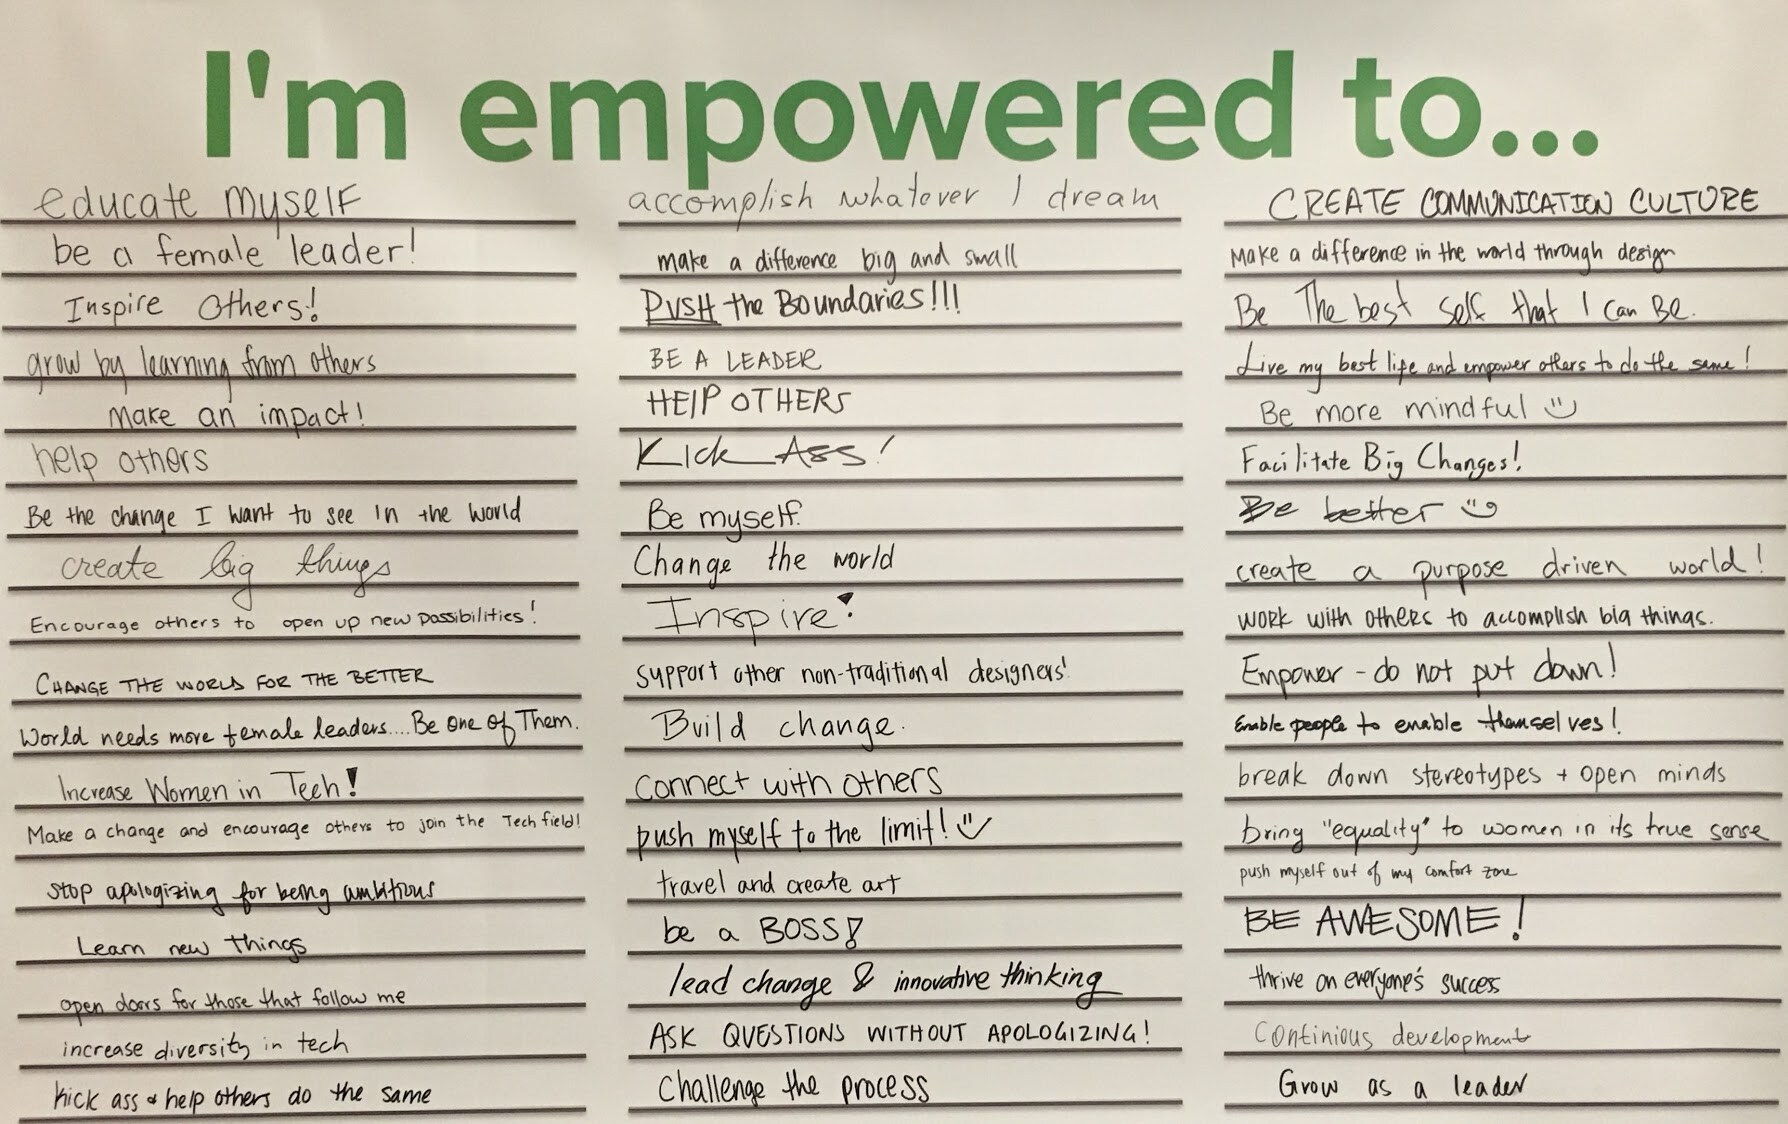 I'm empowered to...
educate myself
be a female leader!
Inspire Others!
grow by learning from others
Make an impact!
help others
Be the change I want to see in the world
create big things
Encourage others to open up new possibilities!
CHANGE THE WORLD FOR THE BETTER
World needs more female leaders....Be one of Them.
Increase Women in Tech!
Make a change and encourage others to join the Tech field!
Stop apologizing for being ambitious
Learn new things
open doors for those that follow me
increase diversity in tech
kick ass & help others do the same
accomplish whatever I dream
make a difference big and small
PUSH the Boundaries!!!
BE A LEADER
HElP OTHERS
Kick Ass!
Be myself.
Change the world
Inspire!
support other non-traditional designers!
Build change.
connect with others
push myself to the limit!
travel and create art
be a BOSS!
lead change & innovative thinking
ASK QUESTIONS WITHOUT APOLOGIZING!
Challenge the process
CREATE COMMUNICATION CULTURE
Make a difference in the world through design
Be The best self that I can Be.
Live my best life and empower others to do the same!
Be more mindful
Facilitate Big Changes!
Be better
create a purpose driven world!
work with others to accomplish big things.
Empower - do not put down!
Enable people to enable themselves!
break down stereotypes + open minds
bring "equality" to women in its true sense
push myself out of my comfort zone
BE AWESOME!
thrive on everyone's success
Continious development
Grow as a leader